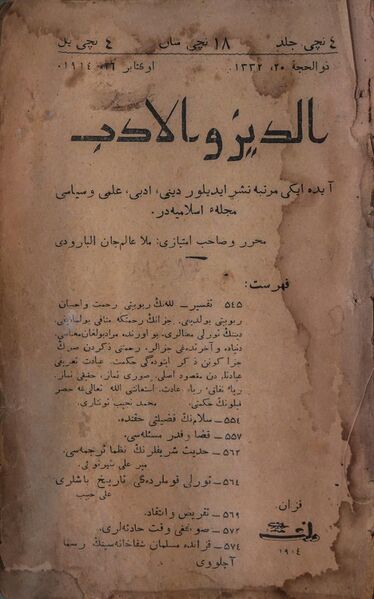 ٤ نچی جلد ١٨ نچی سان ٤ نچی یل
ذوالحجة ٢٠، ١٣٣٢. اوکتابر ٢٦، ١٩١٤.
الدين والادب
آیده ایکی مرتبه نشر ایدیلور دینی، ادبی، علمی و سیاسی
مجلهٔ اسلامیه‌در.
محرر وصاحب امتیازی: ملا عالمجان البارودی
فهرست:
٥٤٥ تفسیر ــ اللهنڭ ربوبیتی رحمت واحسان
ربوبیتی بولدیغی. جزانڭ رحمتکه منافی بولمادیغی.
دیننڭ تورلی معنالری.
دنیاده و آخرتده‌غی جزالر. رحمتی ذکردن صوڭ
جزا کونن ذکر ایتوده‌گی حکمت. عبادت تعریفی
عبادتدن مقصود اصلی. صوری نماز، حقیقی نماز.
الله تعالی‌غه حصر
قیلونڭ حکمتی. محمد نجیب تونتاری.
٥٥٤ ــ سلامنڭ فضیلتی حقنده.
٥٥٧ ــ قضا وقدر مسئله‌سی.
٥٦٢ ــ حدیث شریفلرنڭ نظما ترجمه‌سی.
٥٦٤ ــ تورلی قوملرده‌گی تاریخ باشلری
علی حبیب
٥٦٩ ــ تقریض وانتقاد.
٥٧٢ ــ صوڭغی وقت حادثه‌لری.
٥٧٤ ــ قزانده مسلمان شفاخانه‌سینڭ رسما
آچلووی
قزان